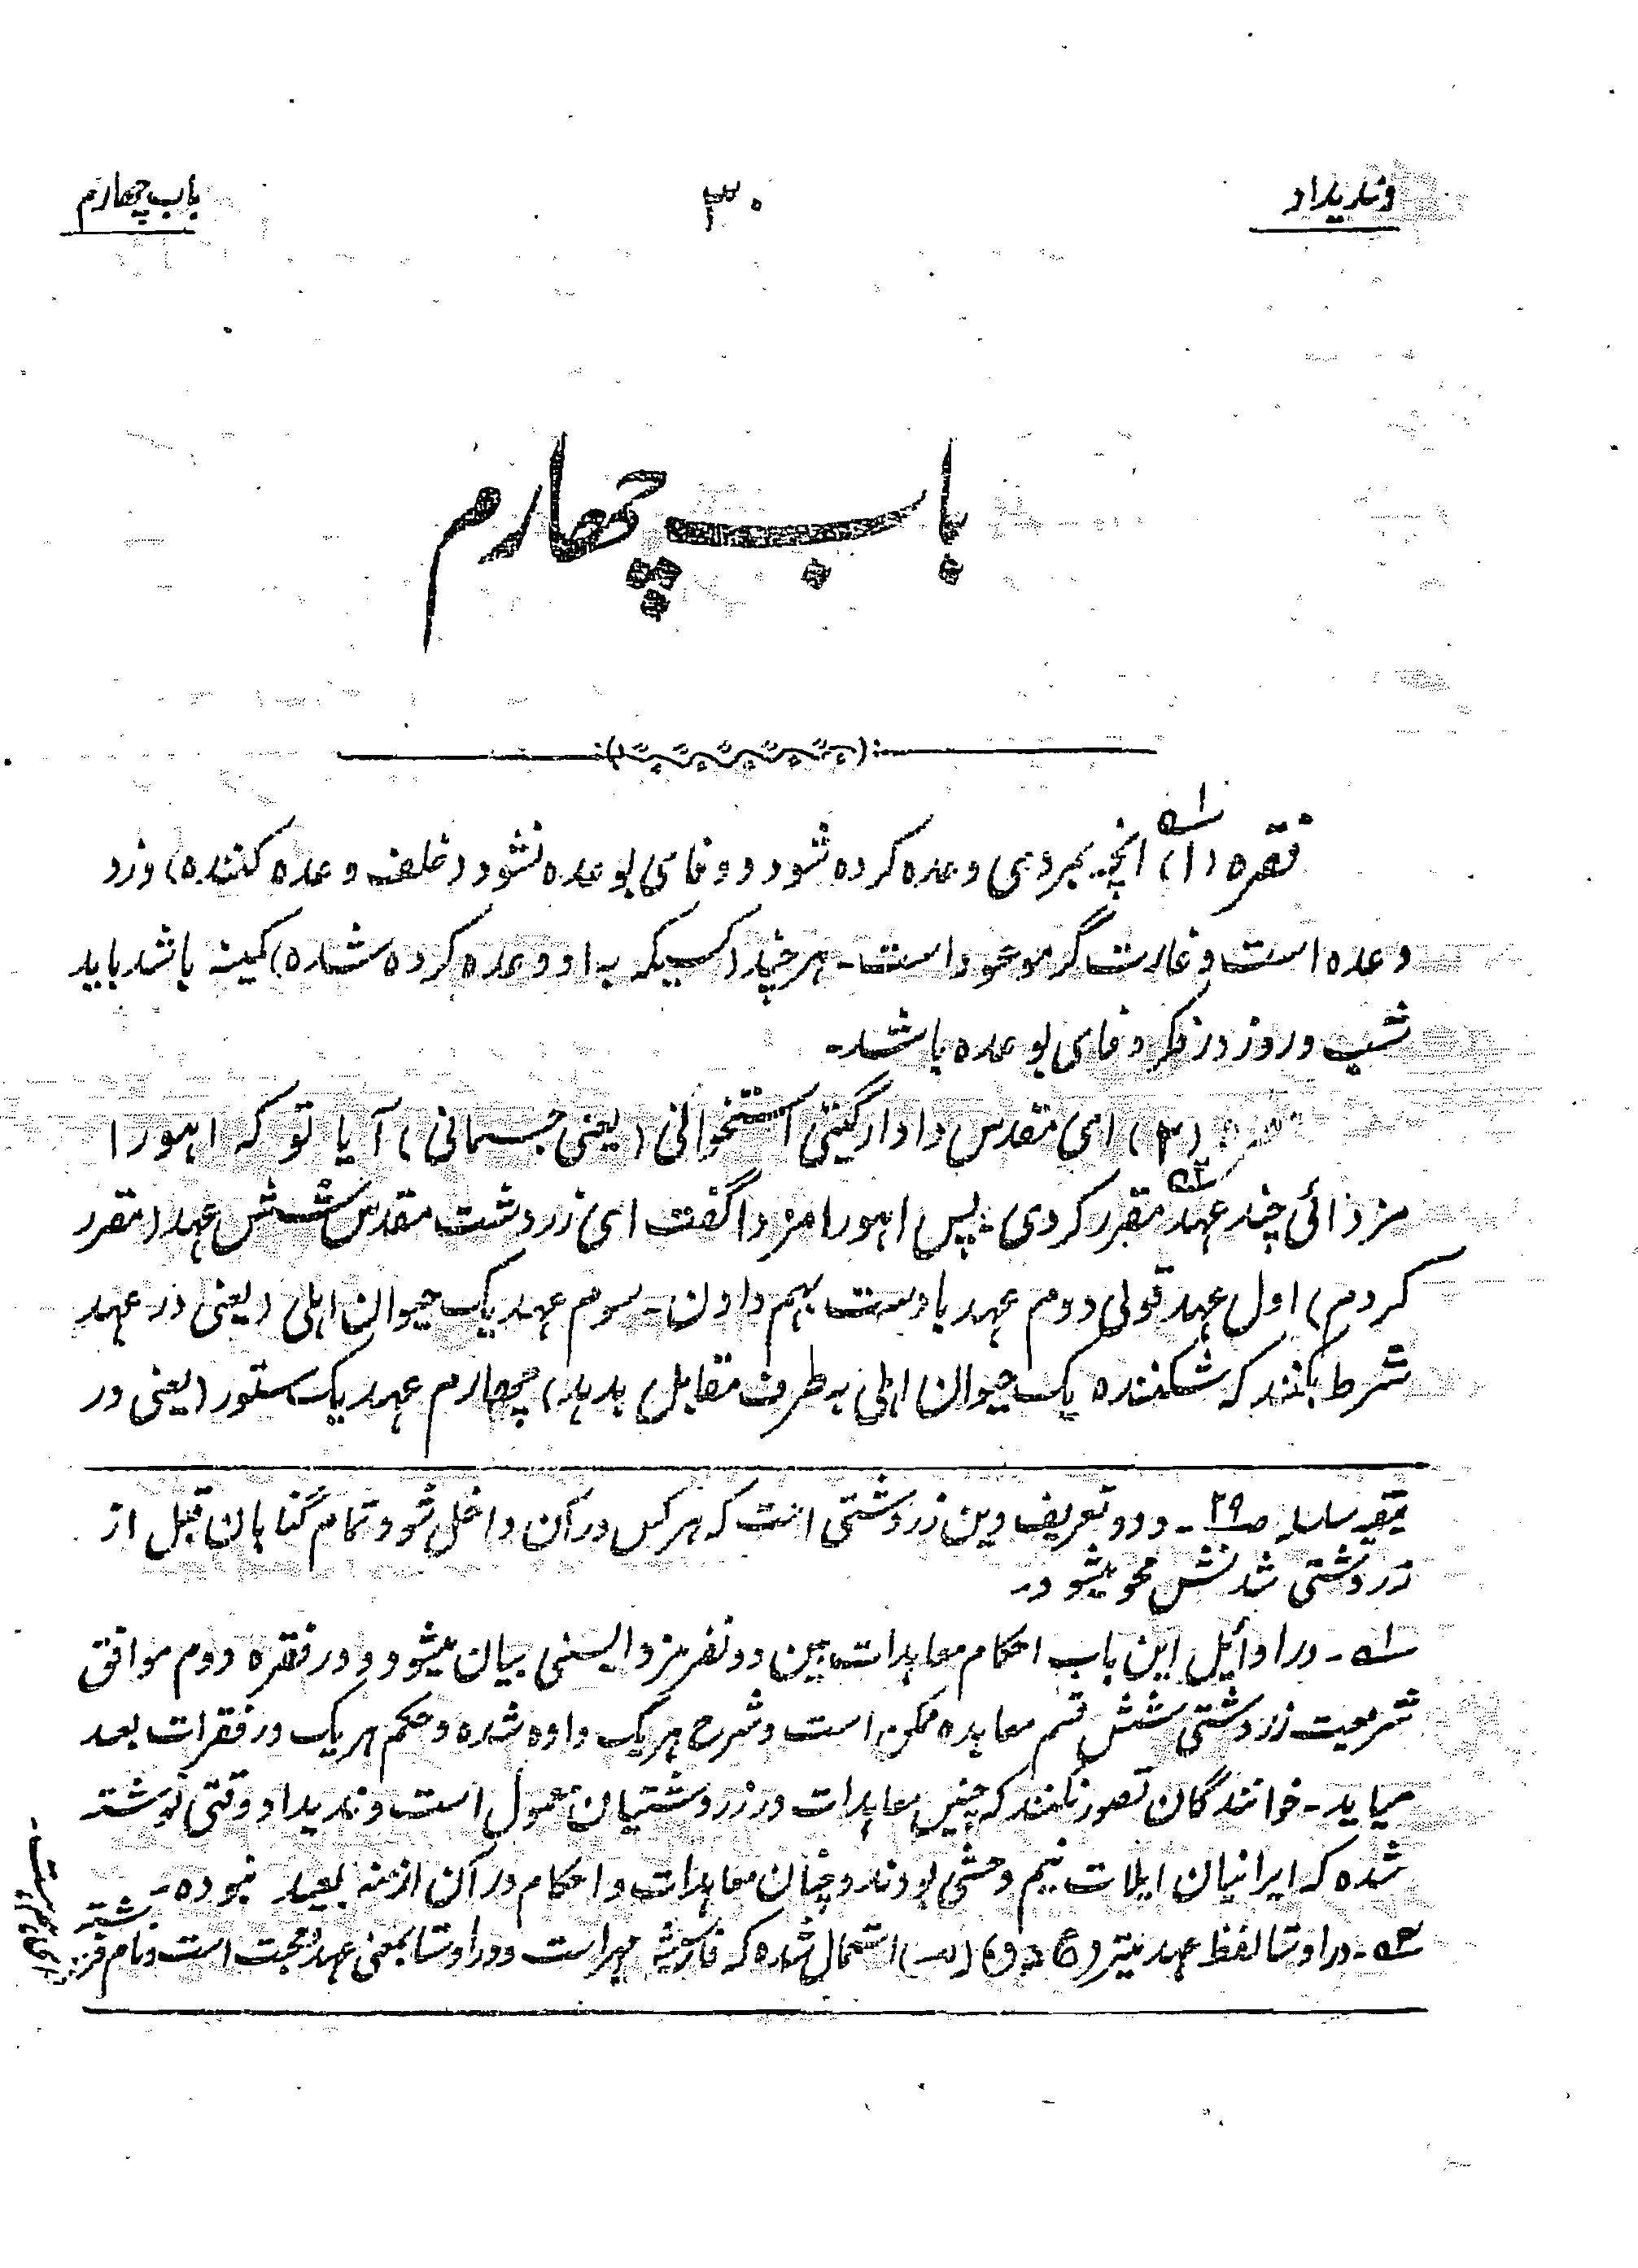 وندیداد
۳۰
باب چهارم
باب چهارم
فقره (۱) انچه بمردی وعده کرده شود و وفای بوعده نشود (خلف وعده کننده) دزد
وعده است و غارت گر موعود است - هر چند (کسیکه به او وعده کرده شده) کمینه باشد باید
شب و روز در فکر وفای بوعده باشد -
فقره (۲) ای مقدس دادار گیتی استخوانی (یعنی جسمانی) آیا تو که اهورا
مزدائی چند عهد مقرر کردی پس اهورامزدا گفت ای زردشت مقدس شش عهد (مقرر
کردم) اول عهد قولی دوم عهد بادست بهم دادن - سوم عهد یک حیوان اهلی (یعنی در عهد
شرط بکنند که شکننده یک حیوان اهلی به طرف مقابل بدهد) چهارم عهد یک ستور (یعنی در
بقیه ص ۲۹ - و در تعریف دین زردشتی است که هر کس در آن داخل شود تمام گناهان قبل از
زردشتی شدنش محو میشود -
۱ - در اوائل این باب احکام معاهدات بین دو نفر مزدایسنی بیان میشود و در فقره دوم موافق
شریعت زردشتی شش قسم معاهده ممکن است و شرح هر یک داده شده و حکم هر یک در فقرات بعد
میاید - خوانندگان تصور نکنند که چنین معاهدات در زردشتیان معمول است وندیداد وقتی نوشته
شده که ایرانیان ایلات نیم وحشی بودند و چنان معاهدات و احکام در آن ازمنه بعید نبوده -
۲ - در اوستا لفظ عهد میتر استعمال شده که فارسیش مهر است و در اوستا بمعنی عهد و محبت است و نام فرشته